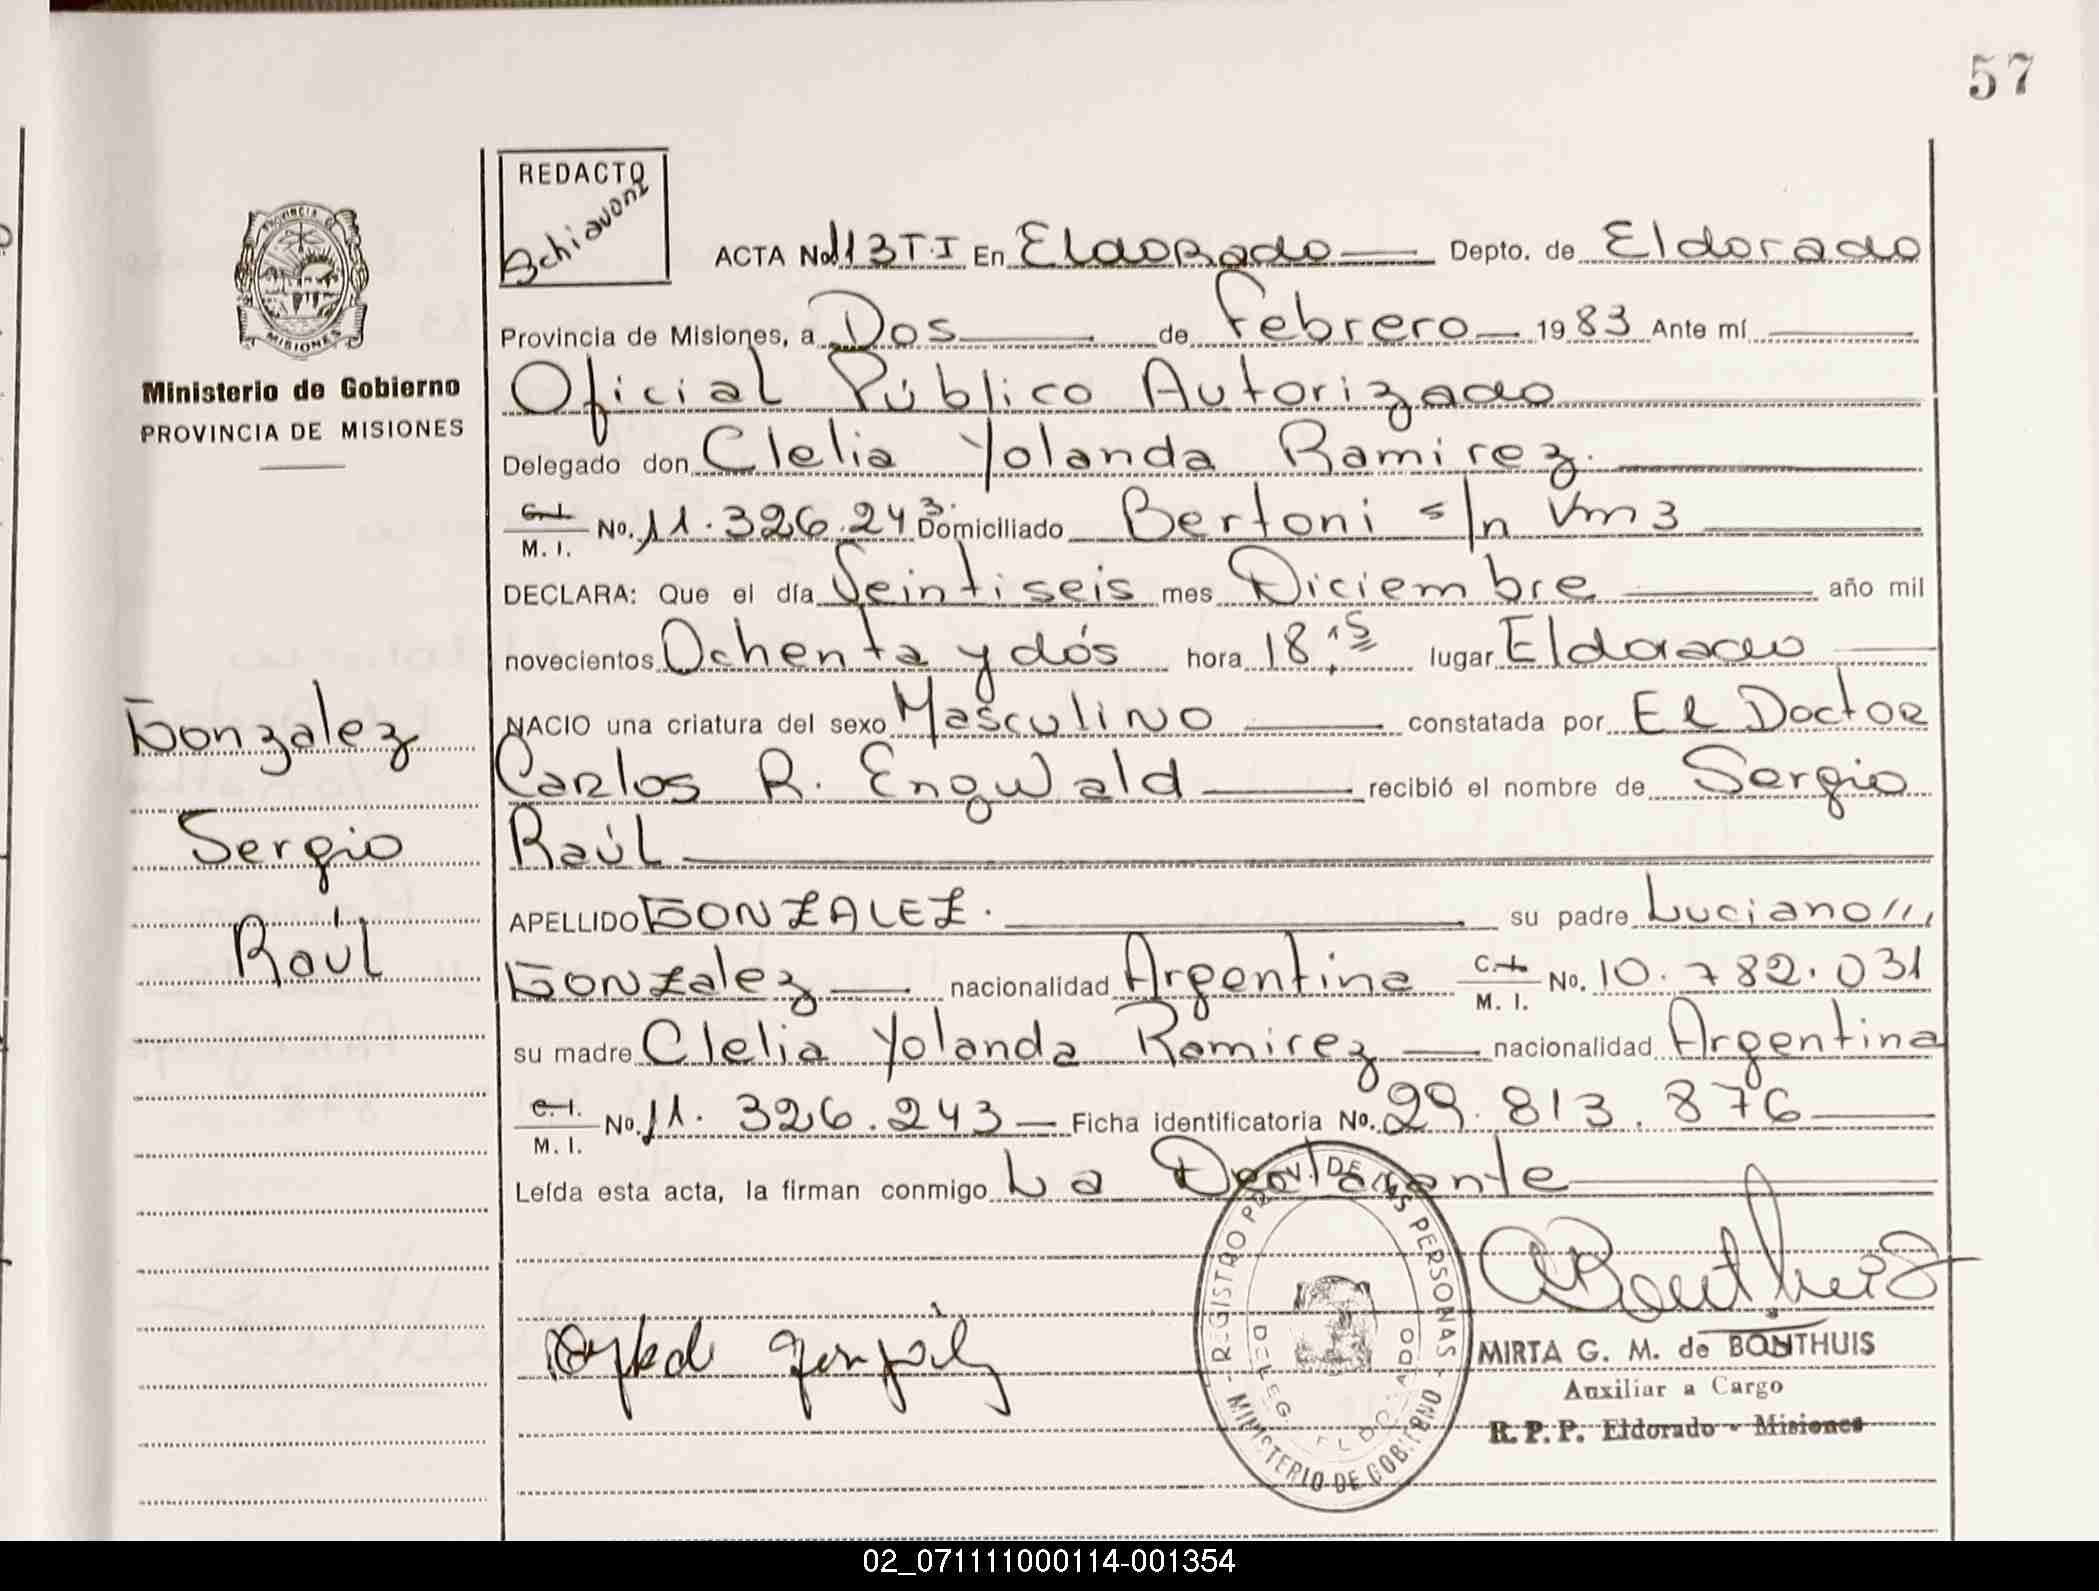 57
REDACTO
Schiavoni
ACTA No 113 T.I En Eldorado Depto. de Eldorado
Provincia de Misiones, a Dos de Febrero 1983 Ante mí
Oficial Público Autorizado
Delegado don Clelia Yolanda Ramirez.
C.I. M. I. No. 11.326.243. Domiciliado Bertoni s/n Km 3
DECLARA: Que el día Veintiseis mes Diciembre año mil
novecientos Ochenta y dós hora 18,15 lugar Eldorado
NACIO una criatura del sexo Masculino constatada por El Doctor
Carlos R. Engwald recibió el nombre de Sergio
Raúl
APELLIDO GONZALEZ. su padre Luciano
Gonzalez nacionalidad Argentina C.I. M. I. No. 10.782.031
su madre Clelia Yolanda Ramirez nacionalidad Argentina
C.I. M. I. No. 11.326.243 Ficha identificatoria No. 29.813.876
Leída esta acta, la firman conmigo La Declarante
PROVINCIA DE MISIONES
Ministerio de Gobierno
PROVINCIA DE MISIONES
Gonzalez
Sergio
Raúl
REGISTRO PROV. DE LAS PERSONAS
MINISTERIO DE GOBIERNO
DELEG. ELDORADO
MIRTA G. M. de BONTHUIS
Auxiliar a Cargo
R. P. P. Eldorado - Misiones
02_071111000114-001354